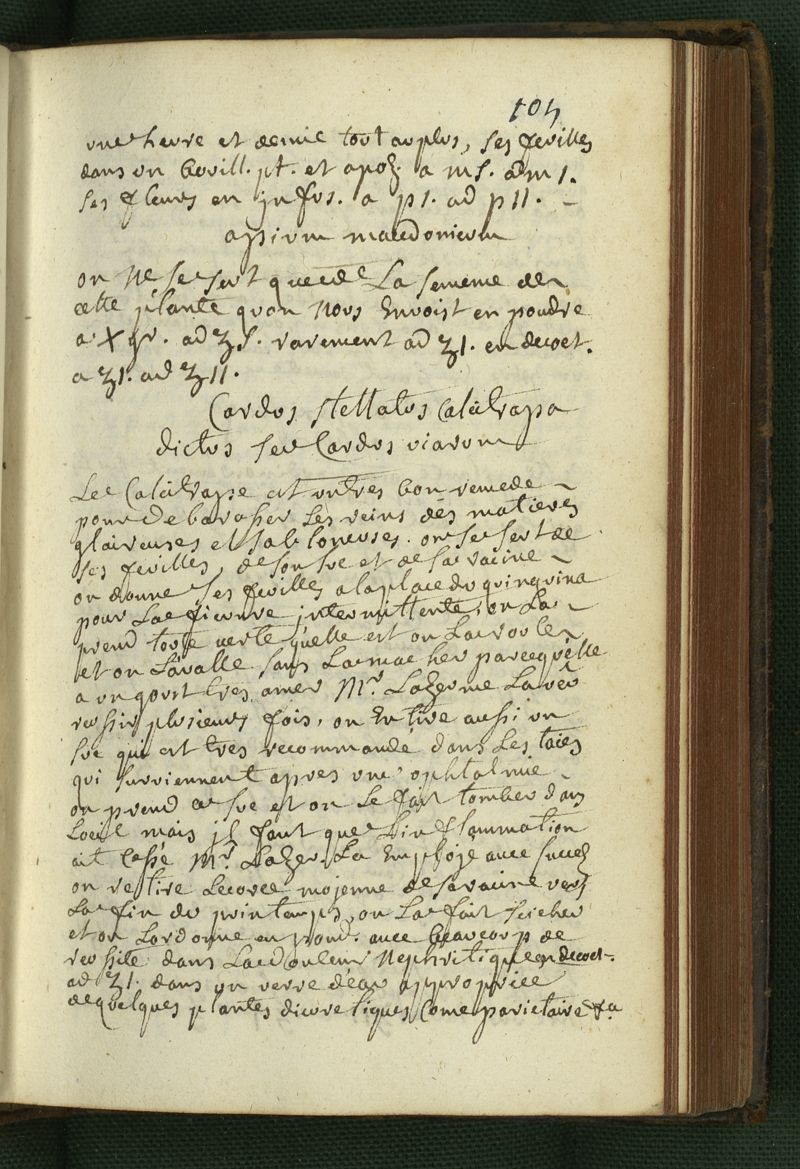 104
une heure et demie tout au plus, ses feuilles
dans un bouill. pt. et apoz. a m s. ad m 1.
ses fleurs en jnfus. a p 1. ad p 11. -
apium macedonicum
on Ne se sert que de La semence de
cette plante quon Nous Envoist en poudre
a X gr. ad ʒ s. rarement ad ʒ 1. en decoct.
a ʒ 1. ad ʒ 11.
Cardus stellatus Calcitrapa
dictus seu Cardus viarum
Le Calcitrappe est un tres bon remede
pour Debarasser Les reins des matieres
glaireuses et sabloneuses. on se sert de
ses feuilles, de son suc et de sa racine
on donne ses feuilles a la place du quinquina
pour La fievre jntermittente, on La
prend toute verte quelle est on La roule
et on Lavalle sans La macher parcequelle
a un goust tres amer Mr. Lazerme La veu
reussir plusieurs fois, on En tire aussi un
suc qui est tres recommandé dans Les taies
qui surviennent apres une ophtalmie
on prend ce suc et on Le fait tomber dans
Loeil mais jl faut que Linflammation
ait Cessé Mr. Lazer. La Emploié avec succez
on retire Lecorce mojenne de sa racine vers
La fin du printemps, on La fait secher
et on Lordonne en poud. avec beaucoup de
reussite dans La douleur Nephritique en decoct.
ad ʒ 1. dans un verre deau appropriee
de quelques plantes diuretiques Come parietaire &a